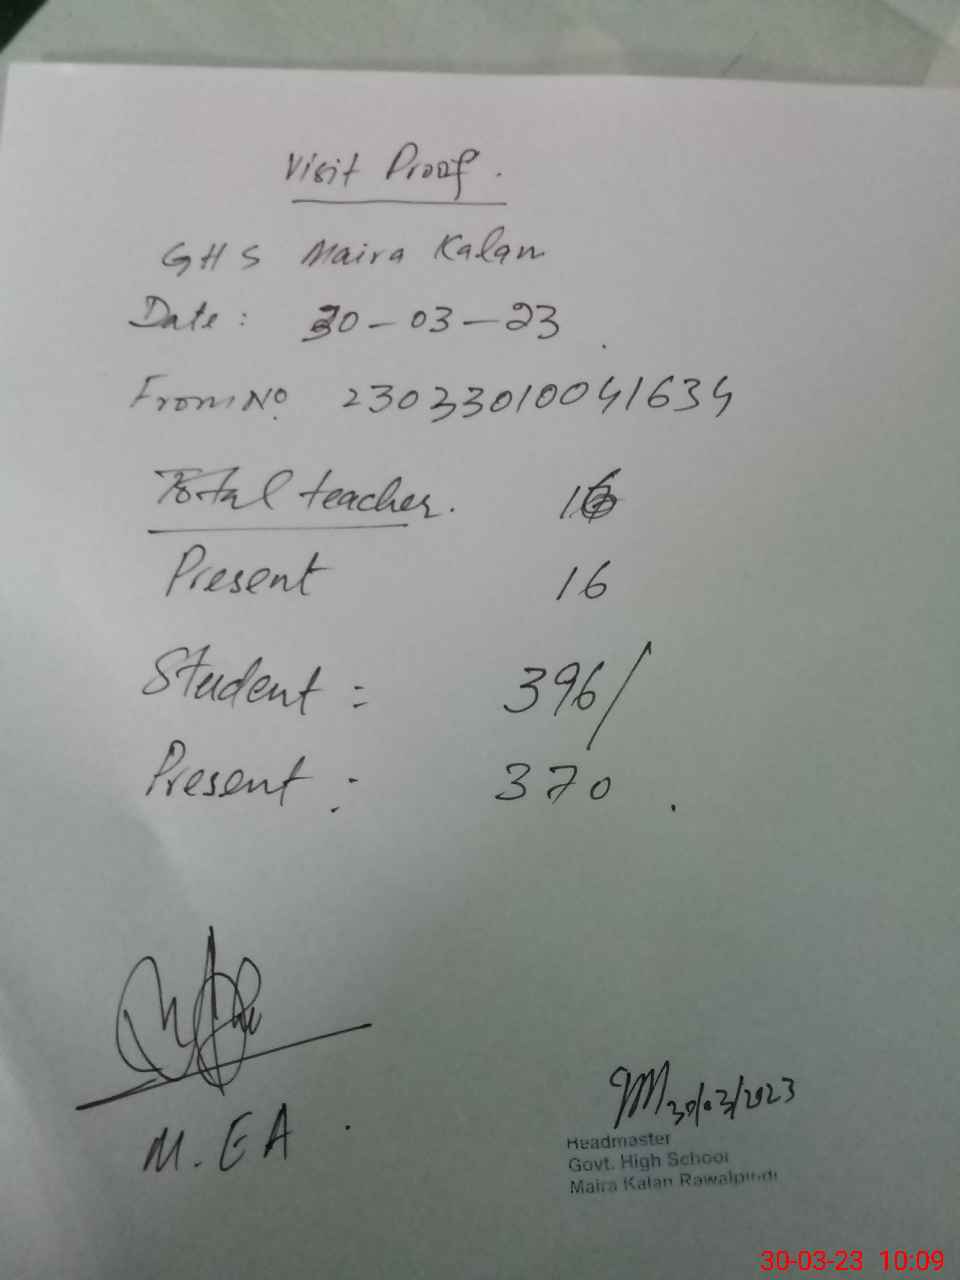 Visit Proof.
GHS Maira Kalan
Date: 30-03-23.
From No. 23033010041634
Total teacher. 16
Present 16
Student = 396/
Present : 370.
M.EA.
30/03/2023
Headmaster
Govt. High School
Maira Kalan Rawalpindi
30-03-23 10:09